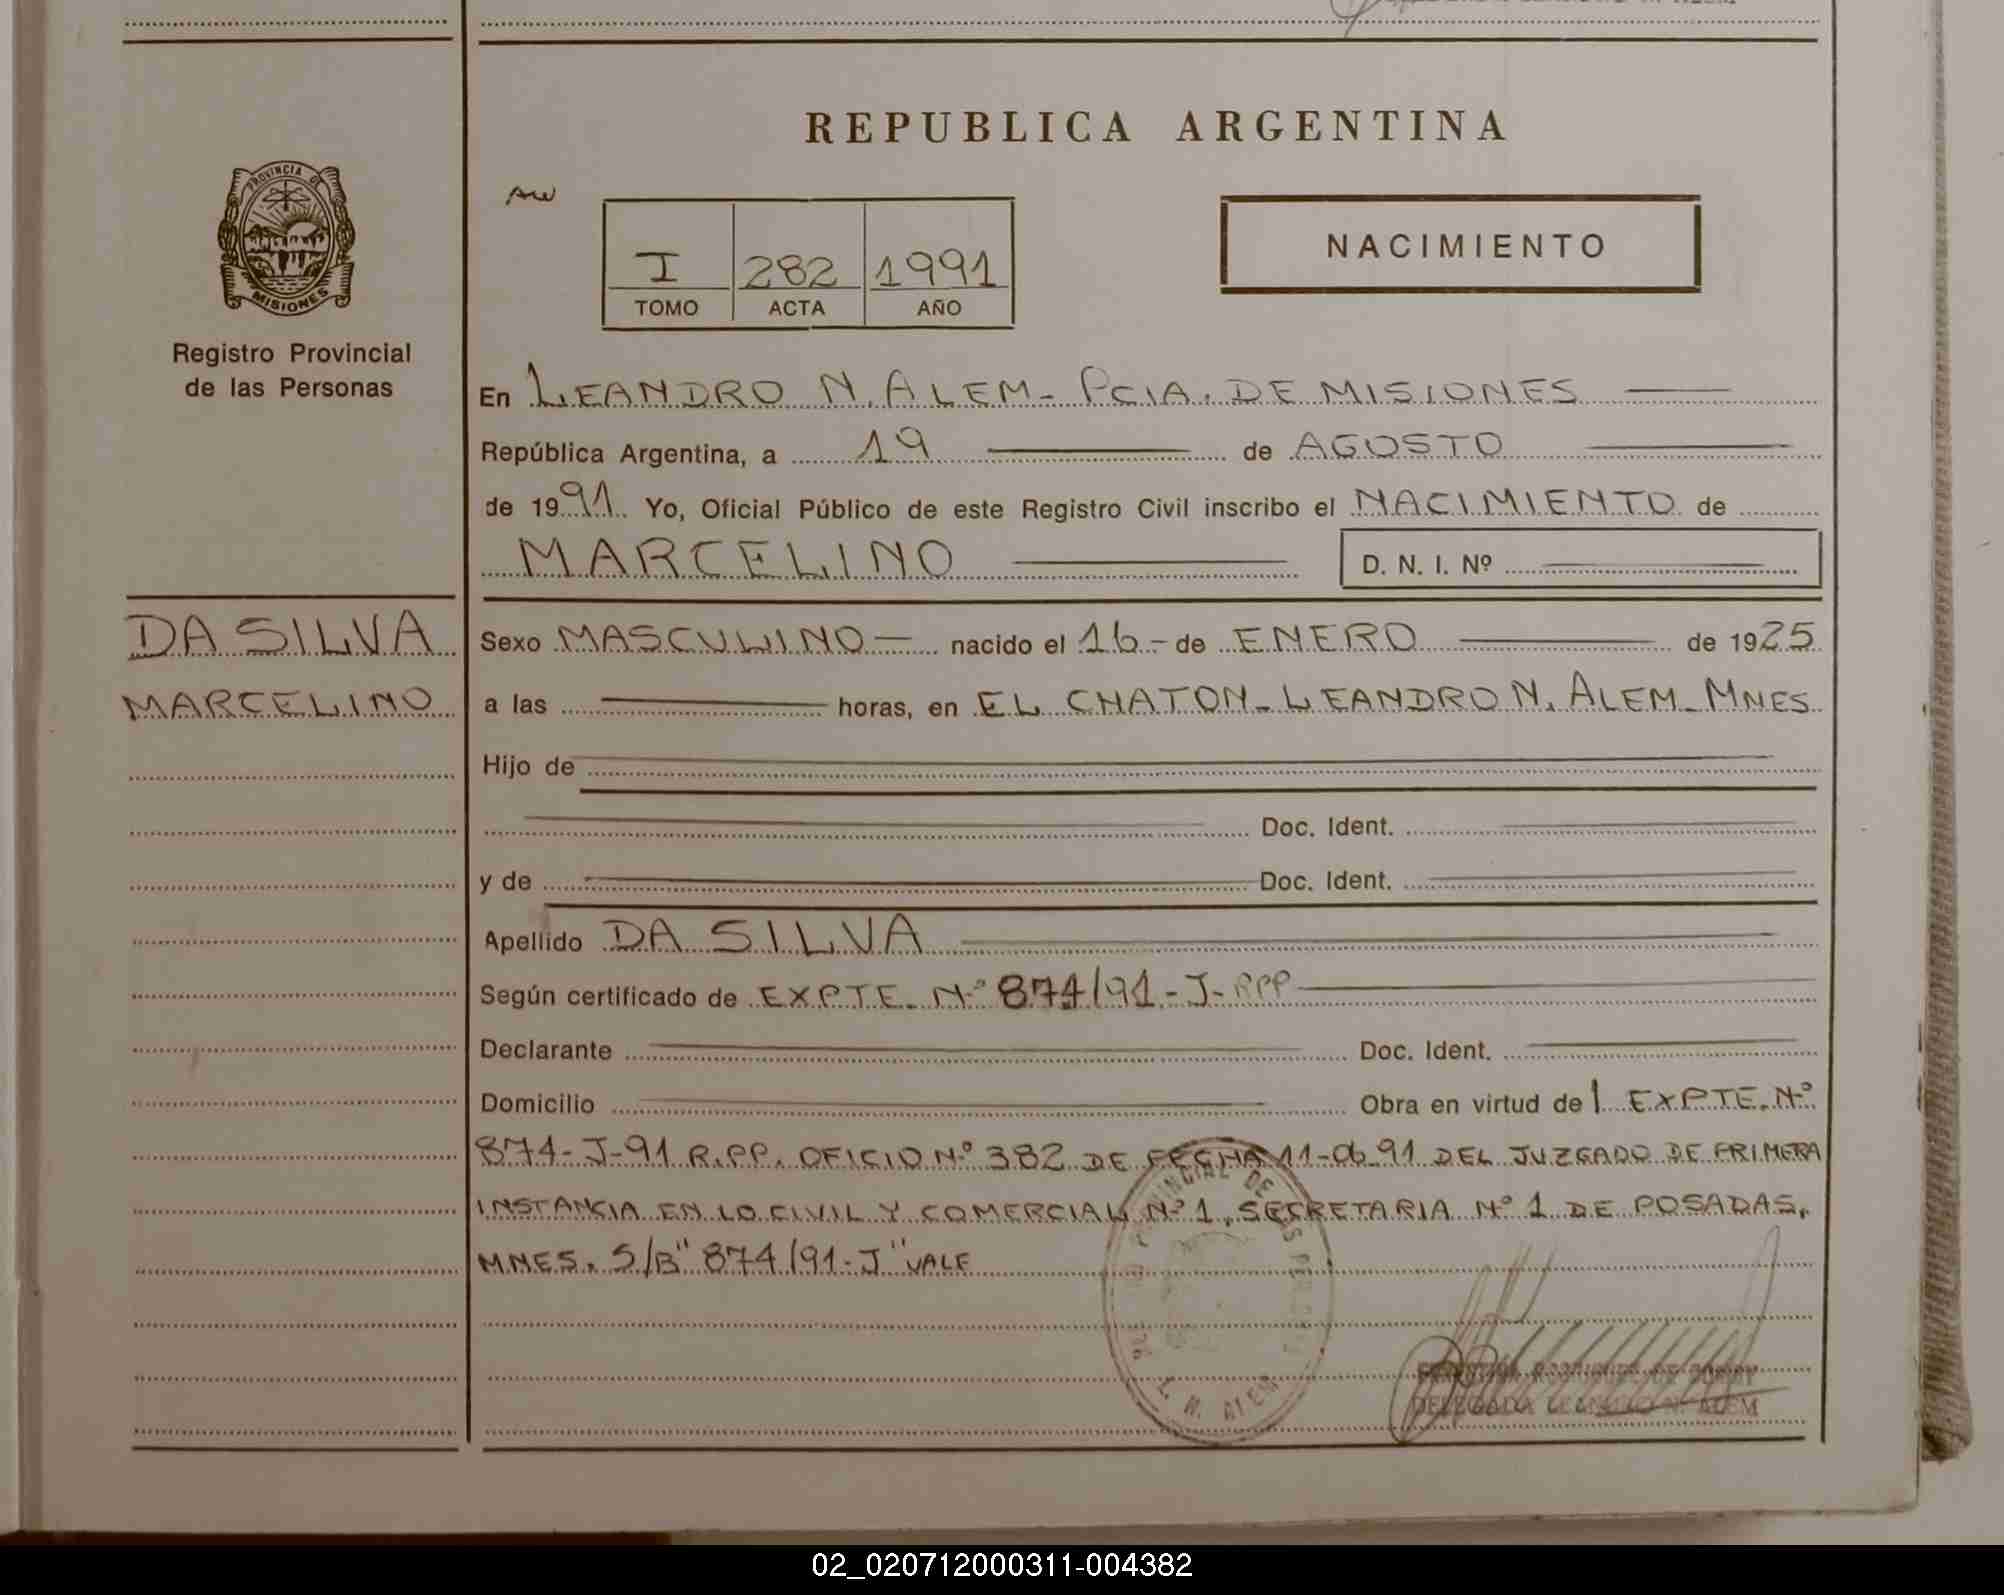 REPUBLICA ARGENTINA
PROVINCIA DE
MISIONES
Registro Provincial
de las Personas
I 282 1991
TOMO ACTA AÑO
NACIMIENTO
En LEANDRO N. ALEM - PCIA. DE MISIONES
República Argentina, a 19 de AGOSTO
de 1991 Yo, Oficial Público de este Registro Civil inscribo el NACIMIENTO de
MARCELINO D. N. I. Nº
DA SILVA
MARCELINO
Sexo MASCULINO nacido el 16 - de ENERO de 1925
a las horas, en EL CHATON - LEANDRO N. ALEM - MNES
Hijo de
Doc. Ident.
y de Doc. Ident.
Apellido DA SILVA
Según certificado de EXPTE. Nº 874/91 - J - RPP
Declarante Doc. Ident.
Domicilio Obra en virtud de l EXPTE. Nº
874-J-91 R.PP. OFICIO Nº 382 DE FECHA 11-06-91 DEL JUZGADO DE PRIMERA
INSTANCIA EN LO CIVIL Y COMERCIAL Nº 1, SECRETARIA Nº 1 DE POSADAS,
MNES. S/B" 874/91-J" VALE
L. N. ALEM
DELEGADA LEANDRO N. ALEM
02_020712000311-004382